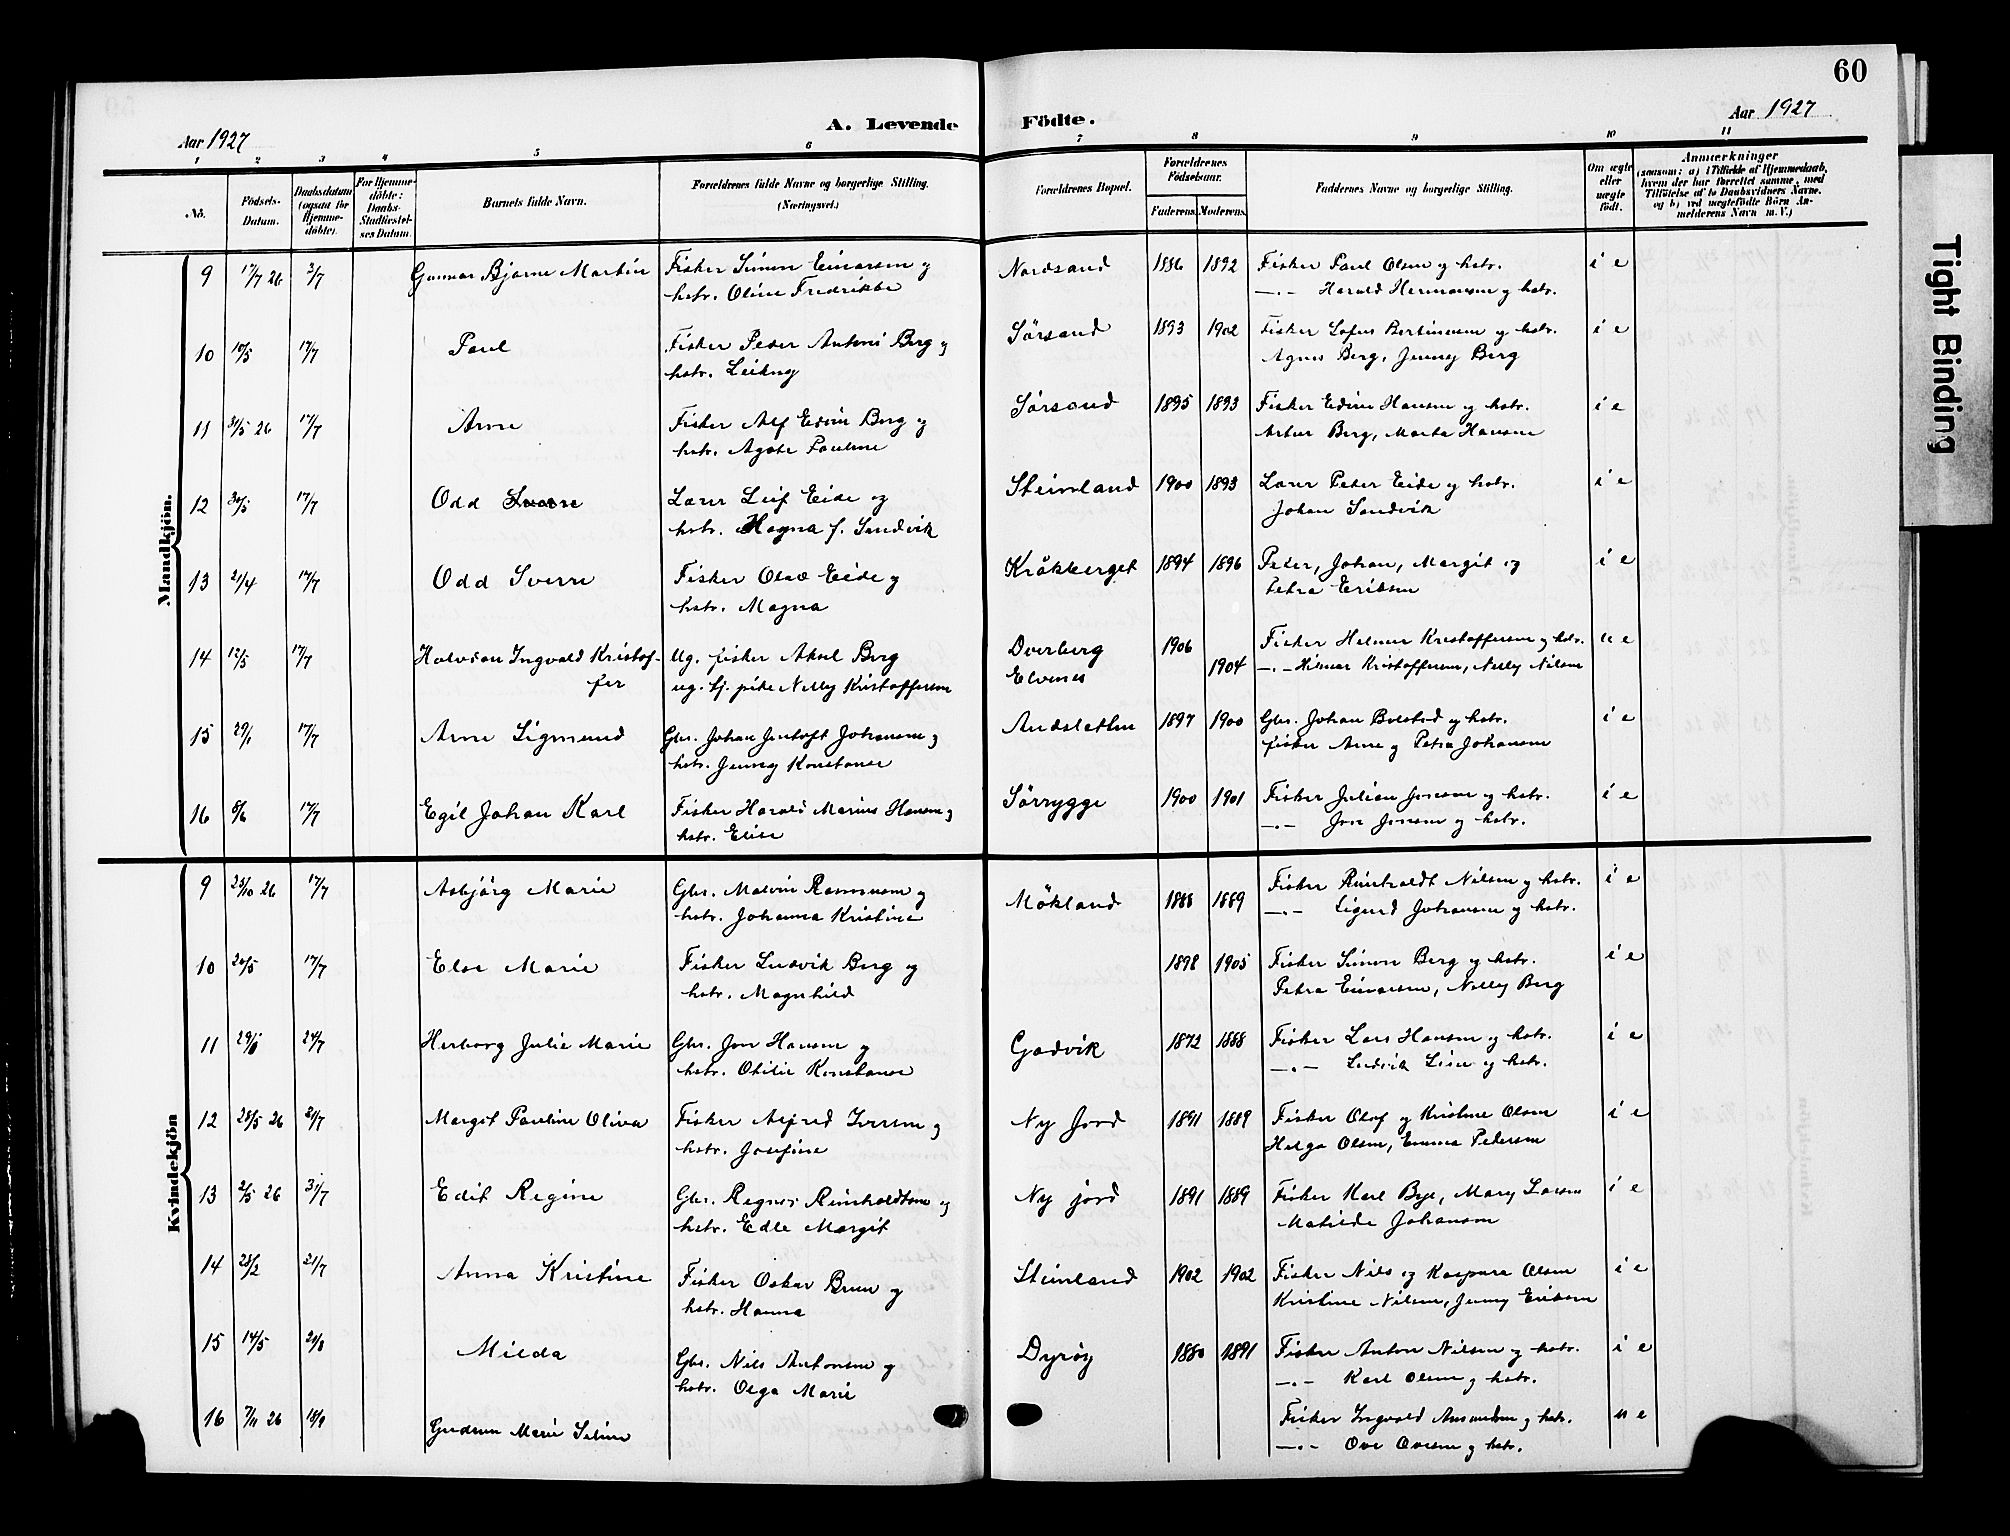 60
A. Levende Födte.
Aar 1927
Aar 1927
1 2 3 4 5 6 7 8 9 10 11
No.
Födsels-Datum.
Daabsdatum (ogsaa for Hjemmedöbte).
For Hjemmedöbte: Daabs-Stadfæstelses Datum.
Barnets fulde Navn.
Forældrenes fulde Navne og borgerlige Stilling. (Næringsvei.)
Forældrenes Bopæl.
Forældrenes Födselsaar.
Faderens. Moderens.
Faddernes Navne og borgerlige Stilling.
Om ægte eller uægte födt.
Anmærkninger
(saasom: a) i Tilfælde af Hjemmedaab, hvem der har forrettet samme, med Tilföielse af to Daabsvidners Navne. og b) ved uægtefödte Börn Anmelderens Navn m. V.)
Mandkjön.
9 17/7 26 3/7 Gunnar Bjarne Martin Fisker Simon Einarsen og Nordsand 1886 1892 Fisker Paul Olsen og hstr. i e
hstr. Oline Fredrikke —.— Harald Hermansen og hstr.
10 10/5 17/7 Paul Fisker Peder Antoni Berg og Sørsand 1893 1902 Fisker Lofus Bertinusen og hstr. i e
hstr. Leikny Agnes Berg, Jenny Berg
11 31/5 26 17/7 Arne Fisker Alf Edvin Berg og Sørsand 1895 1893 Fisker Edvin Hansen og hstr. i e
hstr. Agate Pauline Artur Berg, Marta Hansen
12 30/5 17/7 Odd Lærer Leif Eide og Steinland 1900 1893 Lærer Peter Eide og hstr. i e
hstr. Magna f. Sandvik Johan Sandvik
13 21/4 17/7 Odd Sverre Fisker Olav Eide og Kråkberget 1894 1896 Peter, Johan, Margit og i e
hstr. Magna Petra Eriksen
14 12/5 17/7 Halvdan Ingvald Kristof- Ug. fisker Aksel Berg Dverberg 1906 Fisker Helmer Kristoffersen og hstr. u e
fer ug. tj. pike Nelly Kristoffersen Elvenes 1904 —.— Hilmar Kristoffersen, Nelly Nilsen
15 29/1 17/7 Arne Sigmund Gbr. Johan Jentoft Johansen og Andsletten 1897 1900 Gbr. Johan Bolstad og hstr. i e
hstr. Jenny Konstanse fisker Arne og Petra Johansen
16 8/6 17/7 Egil Johan Karl Fisker Harald Marius Hansen og Sørrygge 1900 1901 Fisker Julian Jensen og hstr. i e
hstr. Elise —.— Jon Jensen og hstr.
Kvindekjön
9 25/10 26 17/7 Asbjørg Marie Gbr. Malvin Rasmusen og Mökland 1888 1889 Fisker Reinholdt Nilsen og hstr. i e
hstr. Johanna Kristine —.— Sigurd Johansen og hstr.
10 20/5 17/7 Else Marie Fisker Ludvik Berg og 1898 1905 Fisker Simon Berg og hstr. i e
hstr. Magnhild Petra Einarsen, Nelly Berg
11 29/1 24/7 Herborg Julie Marie Gbr. Jon Hansen og Gavik 1872 1888 Fisker Lars Hansen og hstr. i e
hstr. Otilie Konstanse —.— Ludvik Lien og hstr.
12 28/5 26 31/7 Margit Pauline Oliva Fisker Alfred Iversen og Ny Jord 1891 1889 Fisker Olof og Kristine Olsen i e
hstr. Josefine Helga Olsen, Emma Pedersen
13 2/5 26 31/7 Edit Regine Gbr. Regner Reinholdtsen og Ny jord 1891 1889 Fisker Karl Bye, Mary Larsen i e
hstr. Edle Margit Matilde Johansen
14 28/2 21/7 Anna Kristine Fisker Oskar Brun og Steinland 1902 1902 Fisker Nils og Kaspara Olsen i e
hstr. Hanna Kristine Nilsen, Jenny Eriksen
15 14/5 21/8 Milda Gbr. Nils Antonsen og Dyrøy 1880 1891 Fisker Anton Nilsen og hstr. i e
hstr. Olga Marie —.— Karl Olsen og hstr.
16 7/11 26 18/9 Gudrun Marie Seline Fisker Ingvald Amundsen og hstr. u e
—.— Ove Ovesen og hstr.
Tight Binding